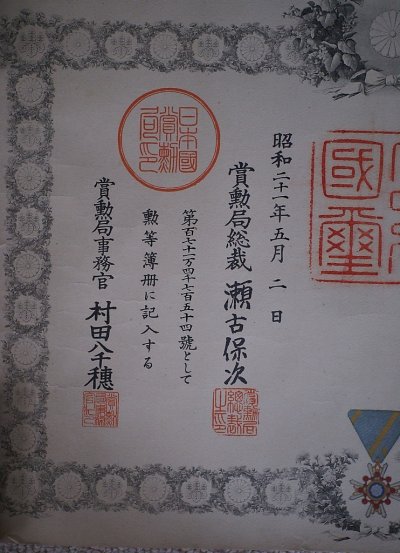 昭和二十一年五月二日
賞勲局総裁 瀬古保次
第百七十一万四千七百五十四號として
勲等簿册に記入する
賞勲局事務官 村田八千穗
日本國賞勲局印
國璽